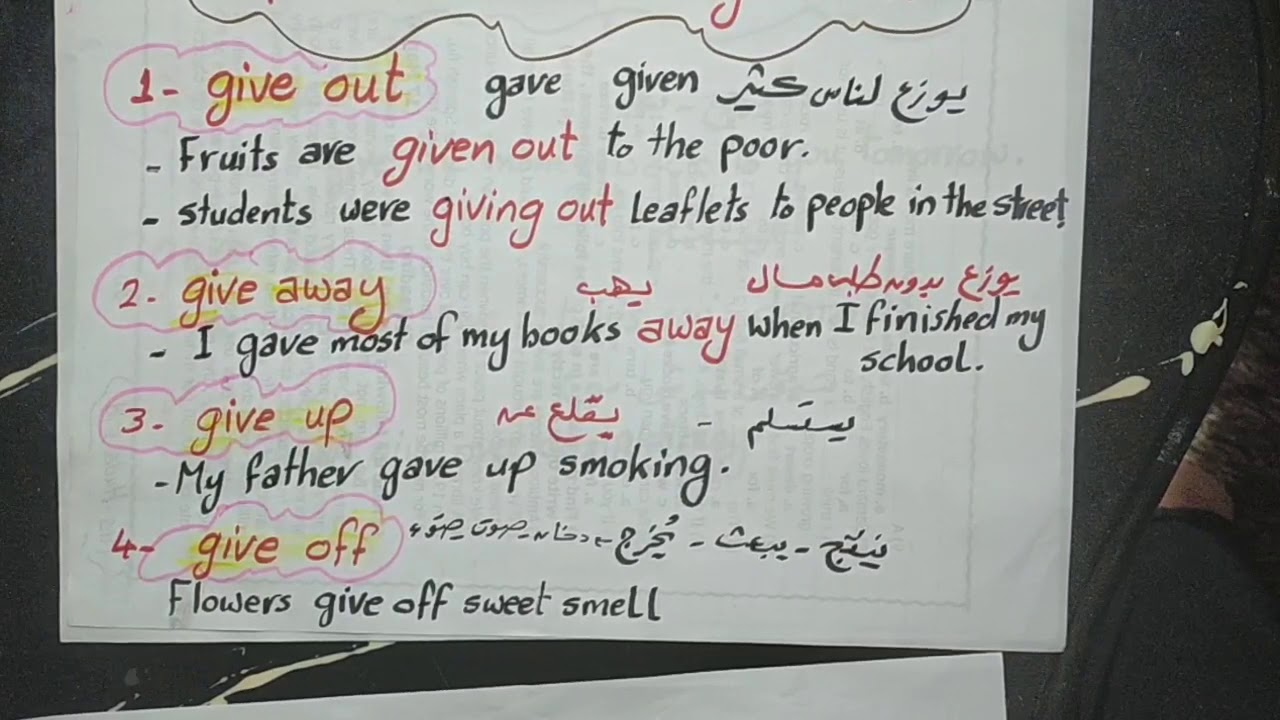 1- give out gave given يوزع لناس كثير
- Fruits are given out to the poor.
- students were giving out leaflets to people in the street
2- give away يهب يوزع بدون طلب مال
- I gave most of my books away when I finished my school.
3- give up يقلع عن - يستسلم
- My father gave up smoking.
4- give off ينتج - يبعث - يُخرج دخان - صوت - ضوء
Flowers give off sweet smell